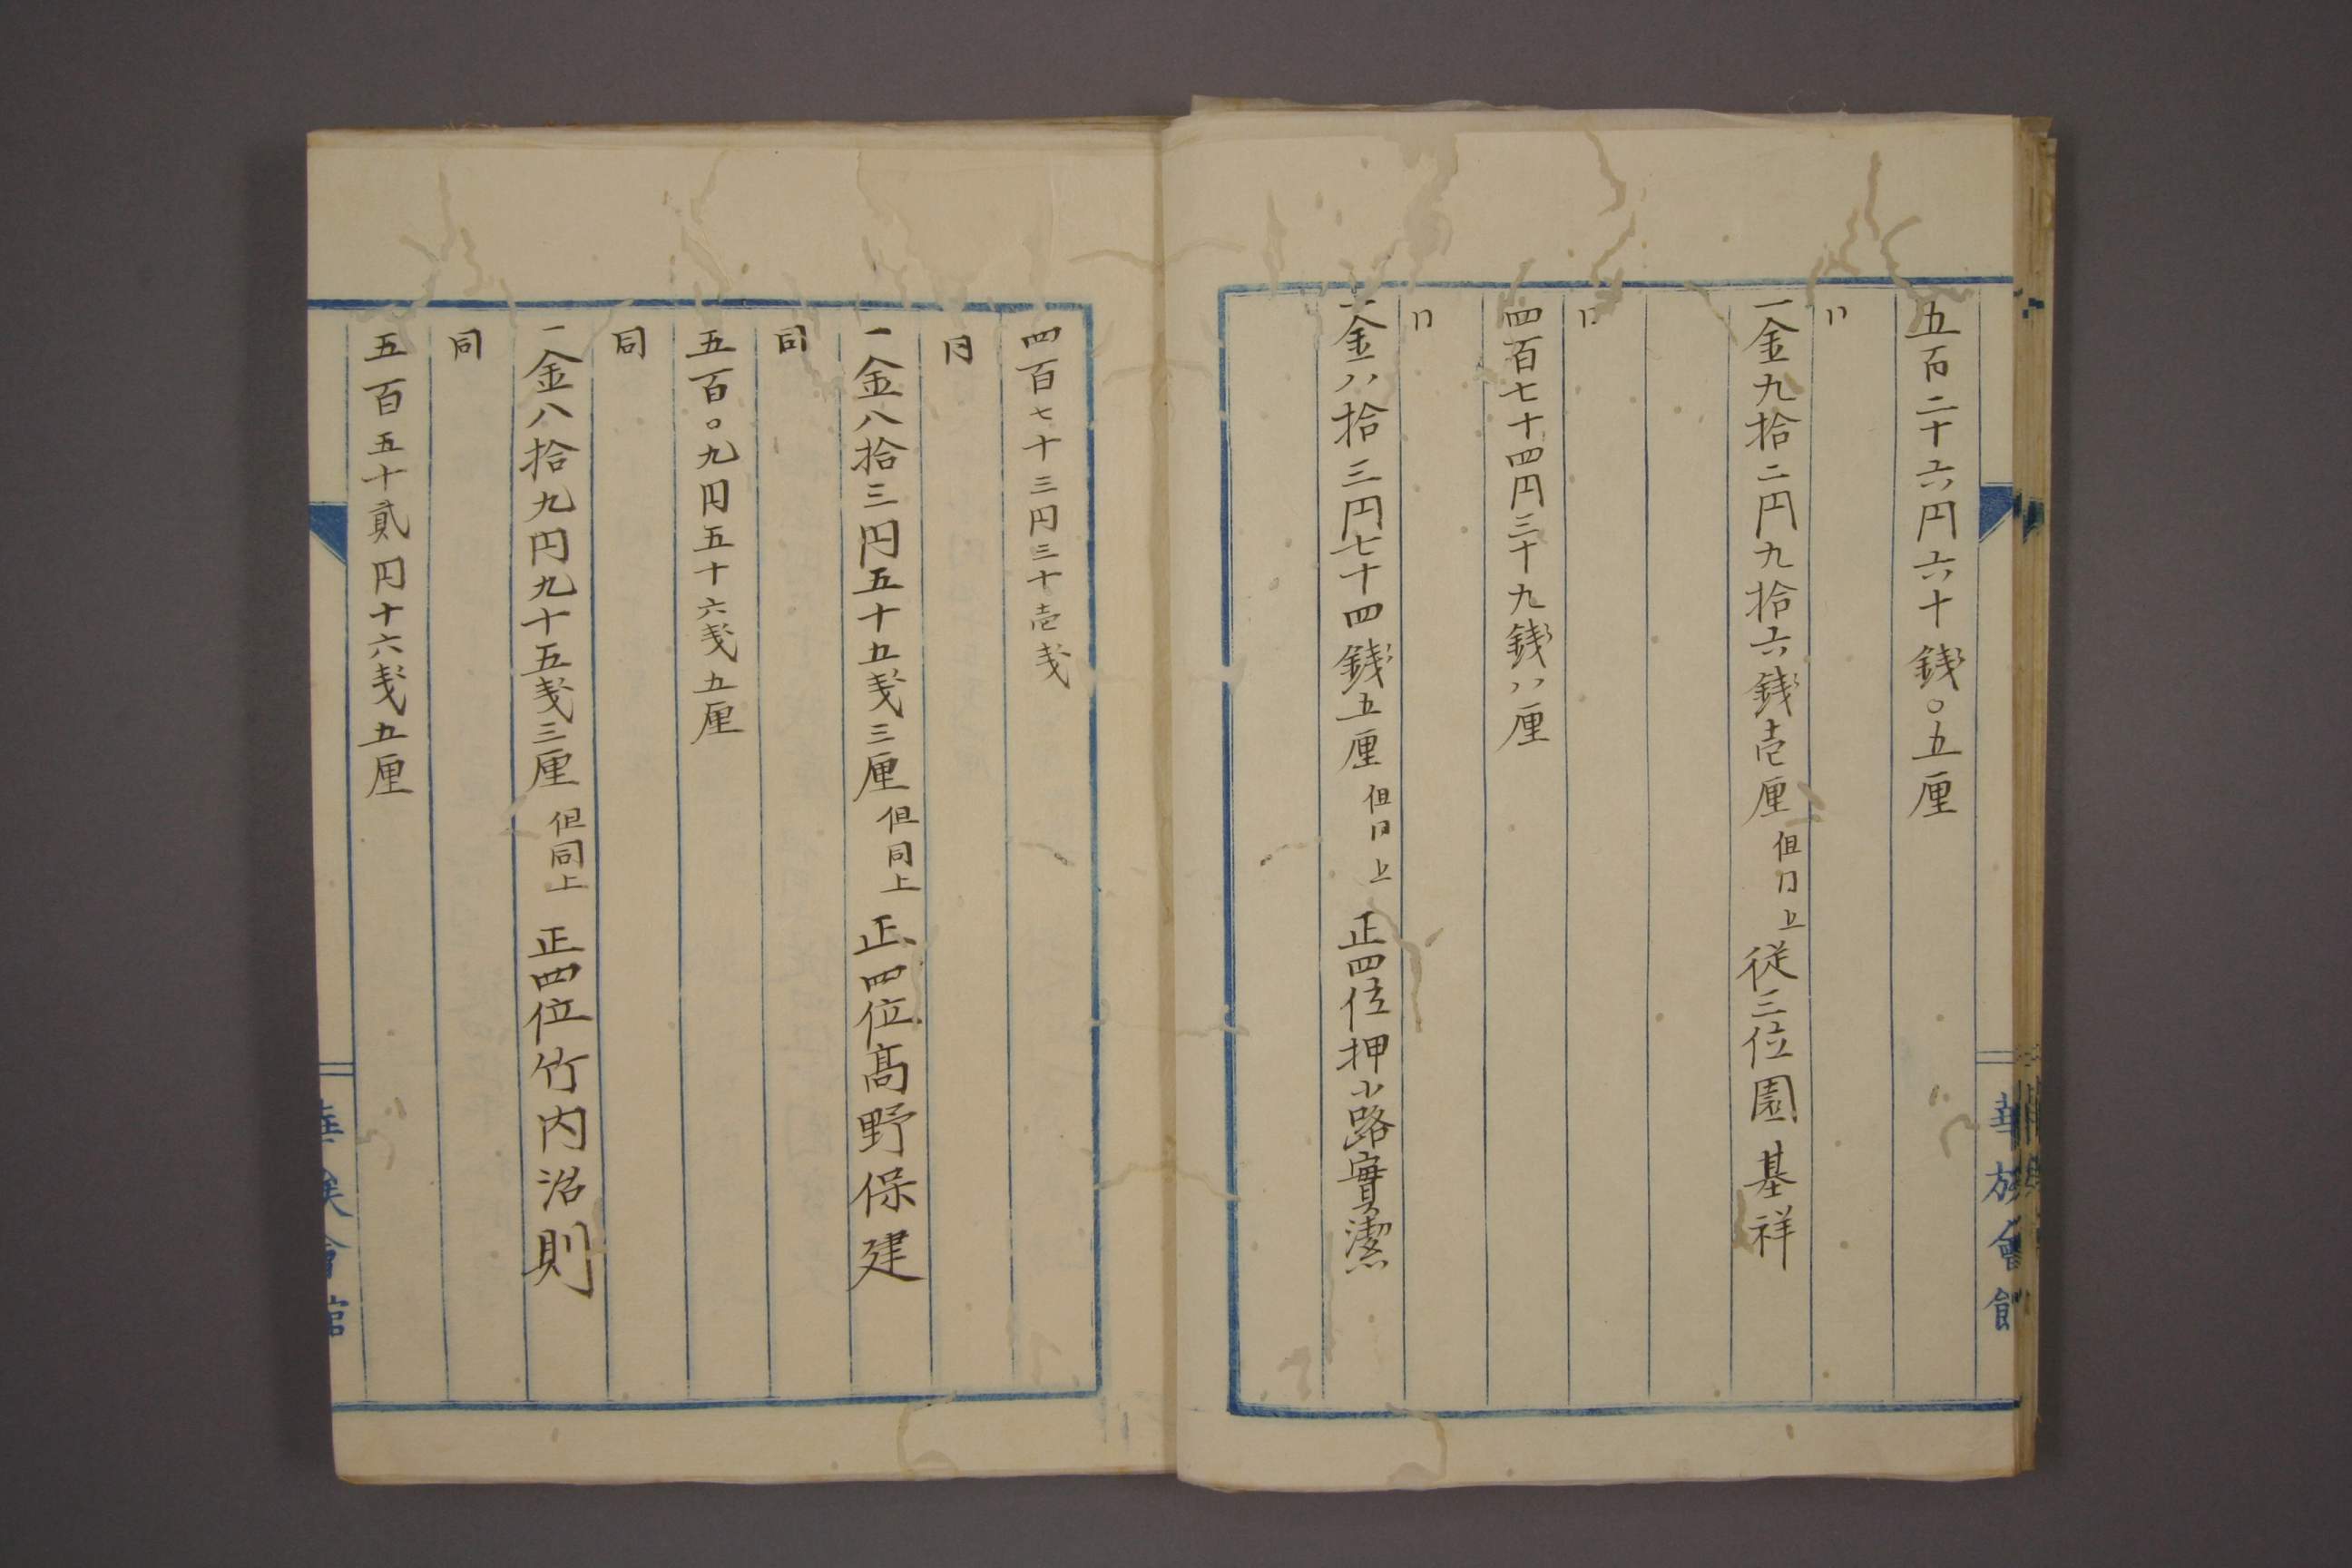 華族會館
五百二十六円六十銭〇五厘
同
一金九拾二円九拾六銭壱厘 但同上 従三位園基祥
同
四百七十四円三十九銭八厘
同
一金八拾三円七十四銭五厘 但同上 正四位押小路實潔
四百七十三円三十壱戋
同
一金八拾三円五十五戋三厘 但同上 正四位髙野保建
同
五百〇九円五十六戋五厘
同
一金八拾九円九十五戋三厘 但同上 正四位竹内治則
同
五百五十貳円十六戋五厘
華族會館